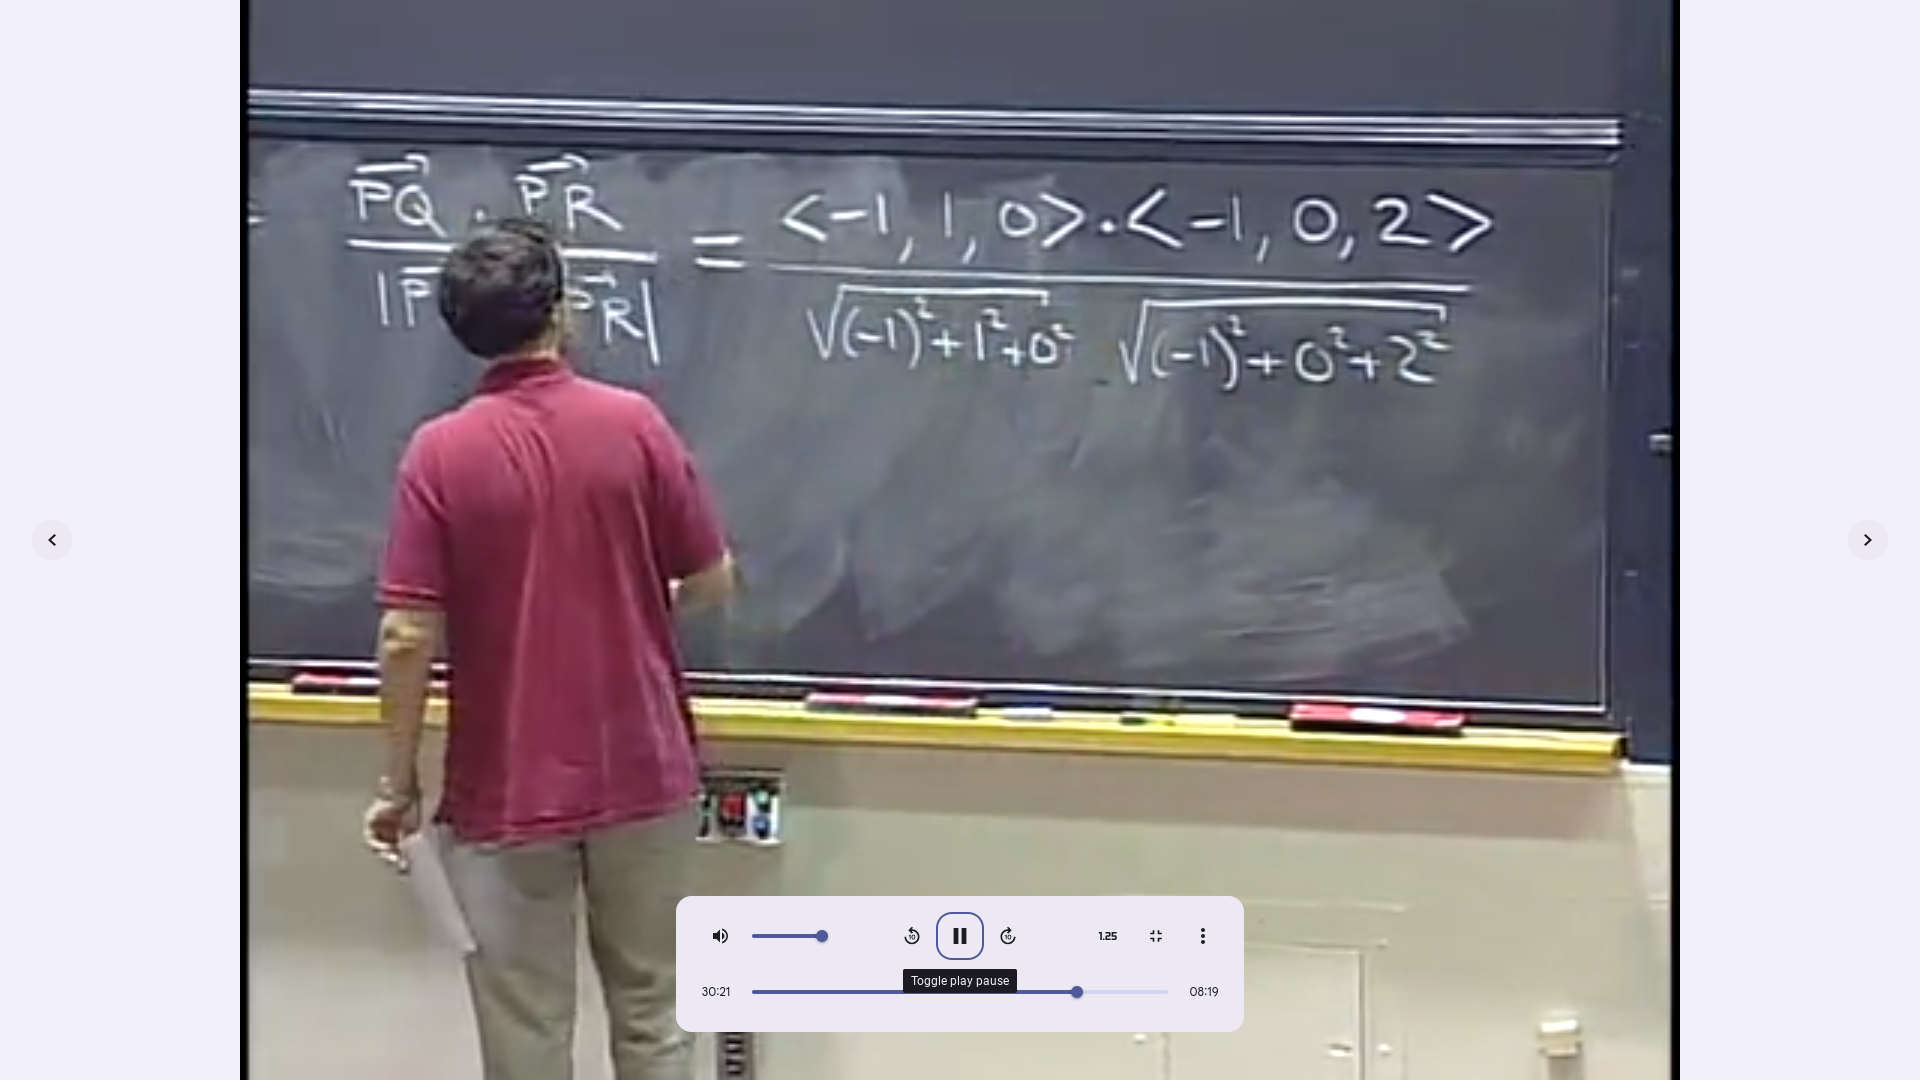 = PQ · PR = <-1, 1, 0> · <-1, 0, 2>
|P R| √(-1)²+1²+0² √(-1)²+0²+2²
1.25
Toggle play pause
30:21 08:19